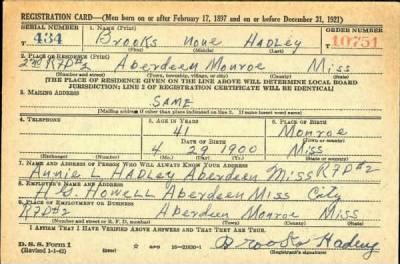 REGISTRATION CARD—(Men born on or after February 17, 1897 and on or before December 31, 1921)
SERIAL NUMBER 1. NAME (Print) ORDER NUMBER
T 434 Brooks None Hadley 10751
(First) (Middle) (Last)
2. PLACE OF RESIDENCE (Print)
RFD#2 Aberdeen Monroe Miss
(Number and street) (Town, township, village, or city) (County) (State)
[THE PLACE OF RESIDENCE GIVEN ON THE LINE ABOVE WILL DETERMINE LOCAL BOARD
JURISDICTION; LINE 2 OF REGISTRATION CERTIFICATE WILL BE IDENTICAL]
3. MAILING ADDRESS
SAME
[Mailing address if other than place indicated on line 2. If same insert word same]
4. TELEPHONE 5. AGE IN YEARS 6. PLACE OF BIRTH
41 Monroe
DATE OF BIRTH (Town or county)
4 29 1900 Miss
(Exchange) (Number) (Mo.) (Day) (Yr.) (State or country)
7. NAME AND ADDRESS OF PERSON WHO WILL ALWAYS KNOW YOUR ADDRESS
Annie L HADley Aberdeen Miss RFD#2
8. EMPLOYER'S NAME AND ADDRESS
Howell Aberdeen Miss City
9. PLACE OF EMPLOYMENT OR BUSINESS
RFD#2 Aberdeen Monroe Miss
(Number and street or R. F. D. number) (Town) (County) (State)
I AFFIRM THAT I HAVE VERIFIED ABOVE ANSWERS AND THAT THEY ARE TRUE.
D. S. S. Form 1
(Revised 1-1-42) Brooks Hadley
(Registrant's signature)